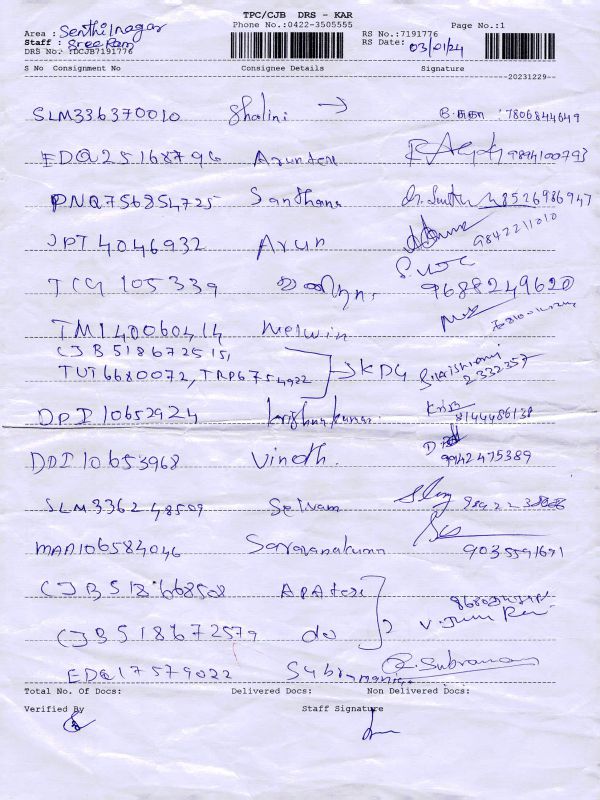 TPC/CJB DRS - KAR
Phone No.:0422-3505555 Page No.:1
Area : Senthilnagar
Staff : Sree Ram
RS No.:7191776
DRS No. :DCJB7191776
RS Date: 03/01/24
S No Consignment No Consignee Details Signature
20231229
SLM336370010 Shalini → : 7806844649
EDQ25168796 9894100793
PNQ756854725 Santhana 8526986947
JPT4046932 Arun 9842211010
TCG105339 9688249620
TMI40060414 Melwin
CJB518672515,
TUT6680072, TRP6754922 KDG 2332357
DPI10652924 Krishnakumar Krish 8144486138
DDI10653968 Vineth. 9942475389
SLM336248509 Selvam
MAA106584046 Saravanakumar 9035591691
CJB518668508
CJB518672579 do
EDQ17579022 Subramaniya R. Subraman
Total No. Of Docs: Delivered Docs: Non Delivered Docs:
Verified By Staff Signature